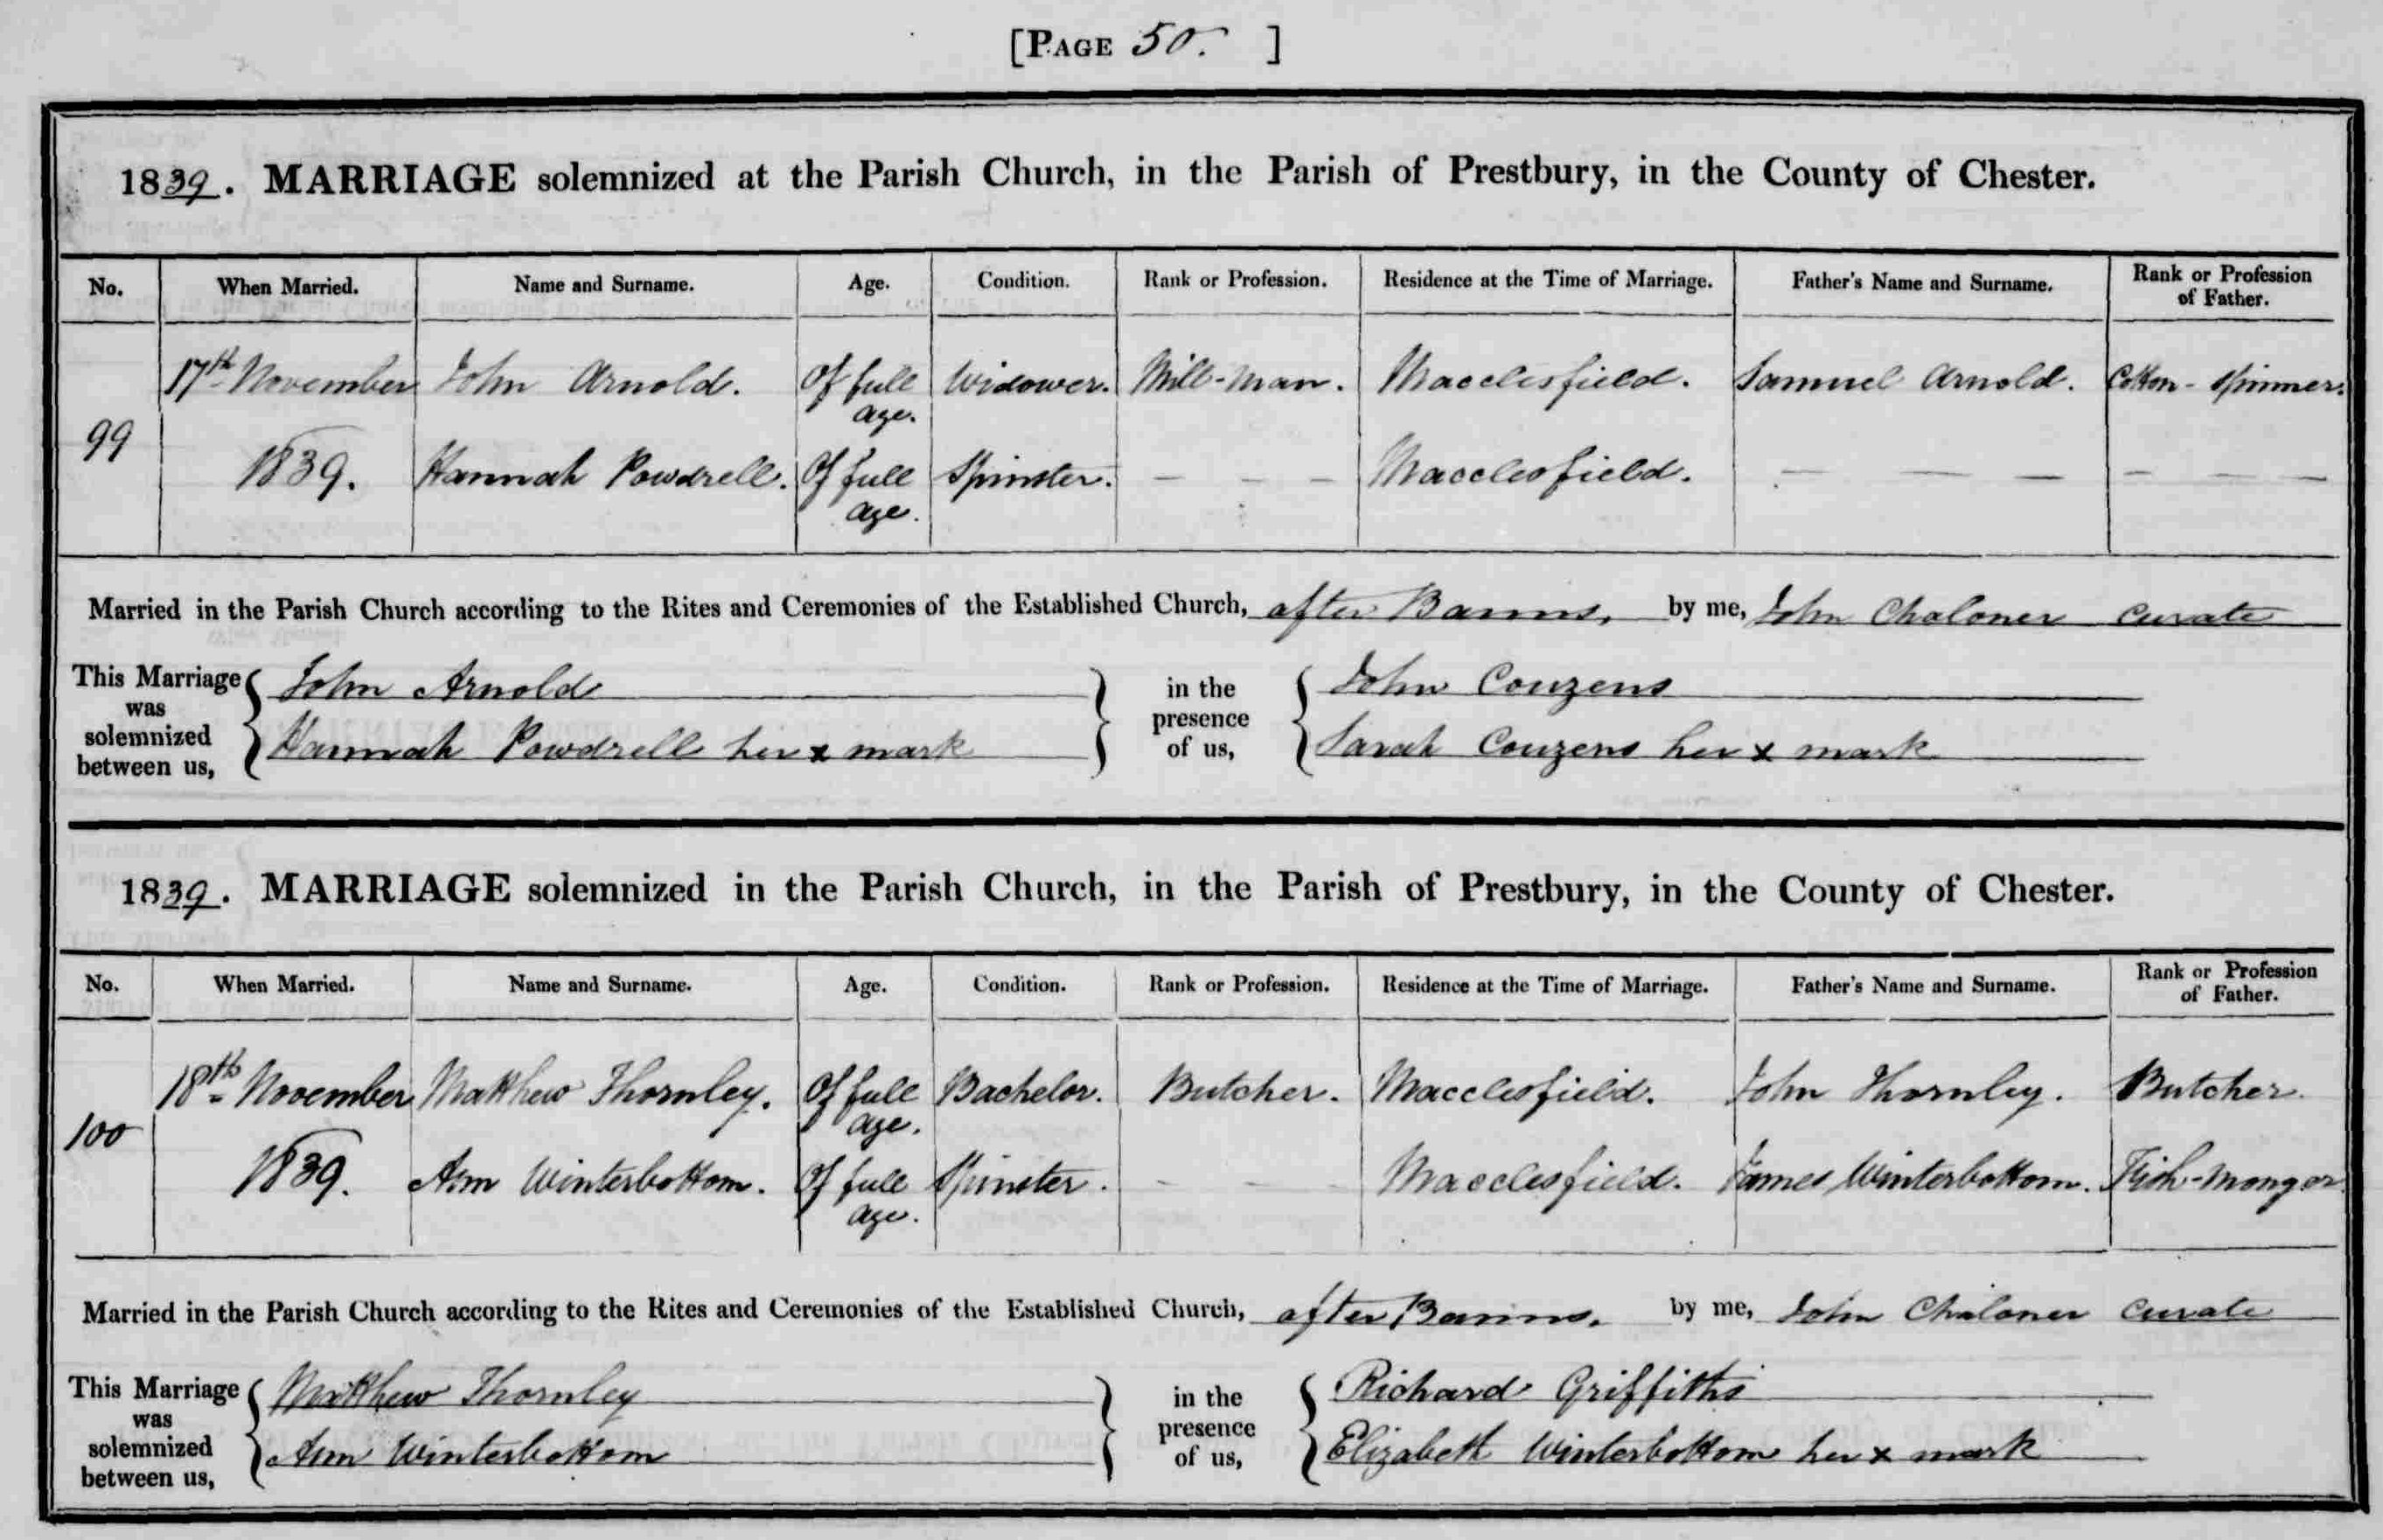 [PAGE 50. ]
1839. MARRIAGE solemnized at the Parish Church, in the Parish of Prestbury, in the County of Chester.
No. When Married. Name and Surname. Age. Condition. Rank or Profession. Residence at the Time of Marriage. Father's Name and Surname. Rank or Profession of Father.
17th November John Arnold. Of full age. Widower. Mill-Man. Macclesfield. Samuel Arnold. Cotton-Spinner.
99
1839. Hannah Powdrell. Of full age. Spinster. — — — Macclesfield. — — — — — —
Married in the Parish Church according to the Rites and Ceremonies of the Established Church, after Banns, by me, John Chaloner Curate
This Marriage was solemnized between us,
John Arnold
Hannah Powdrell her x mark
in the presence of us,
John Couzens
Sarah Couzens her x mark
1839. MARRIAGE solemnized in the Parish Church, in the Parish of Prestbury, in the County of Chester.
No. When Married. Name and Surname. Age. Condition. Rank or Profession. Residence at the Time of Marriage. Father's Name and Surname. Rank or Profession of Father.
18th November Matthew Thornley. Of full age. Bachelor. Butcher. Macclesfield. John Thornley. Butcher.
100
1839. Ann Winterbottom. Of full age. Spinster. — — — Macclesfield. James Winterbottom. Fish-Monger.
Married in the Parish Church according to the Rites and Ceremonies of the Established Church, after Banns, by me, John Chaloner Curate
This Marriage was solemnized between us,
Matthew Thornley
Ann Winterbottom
in the presence of us,
Richard Griffiths
Elizabeth Winterbottom her x mark